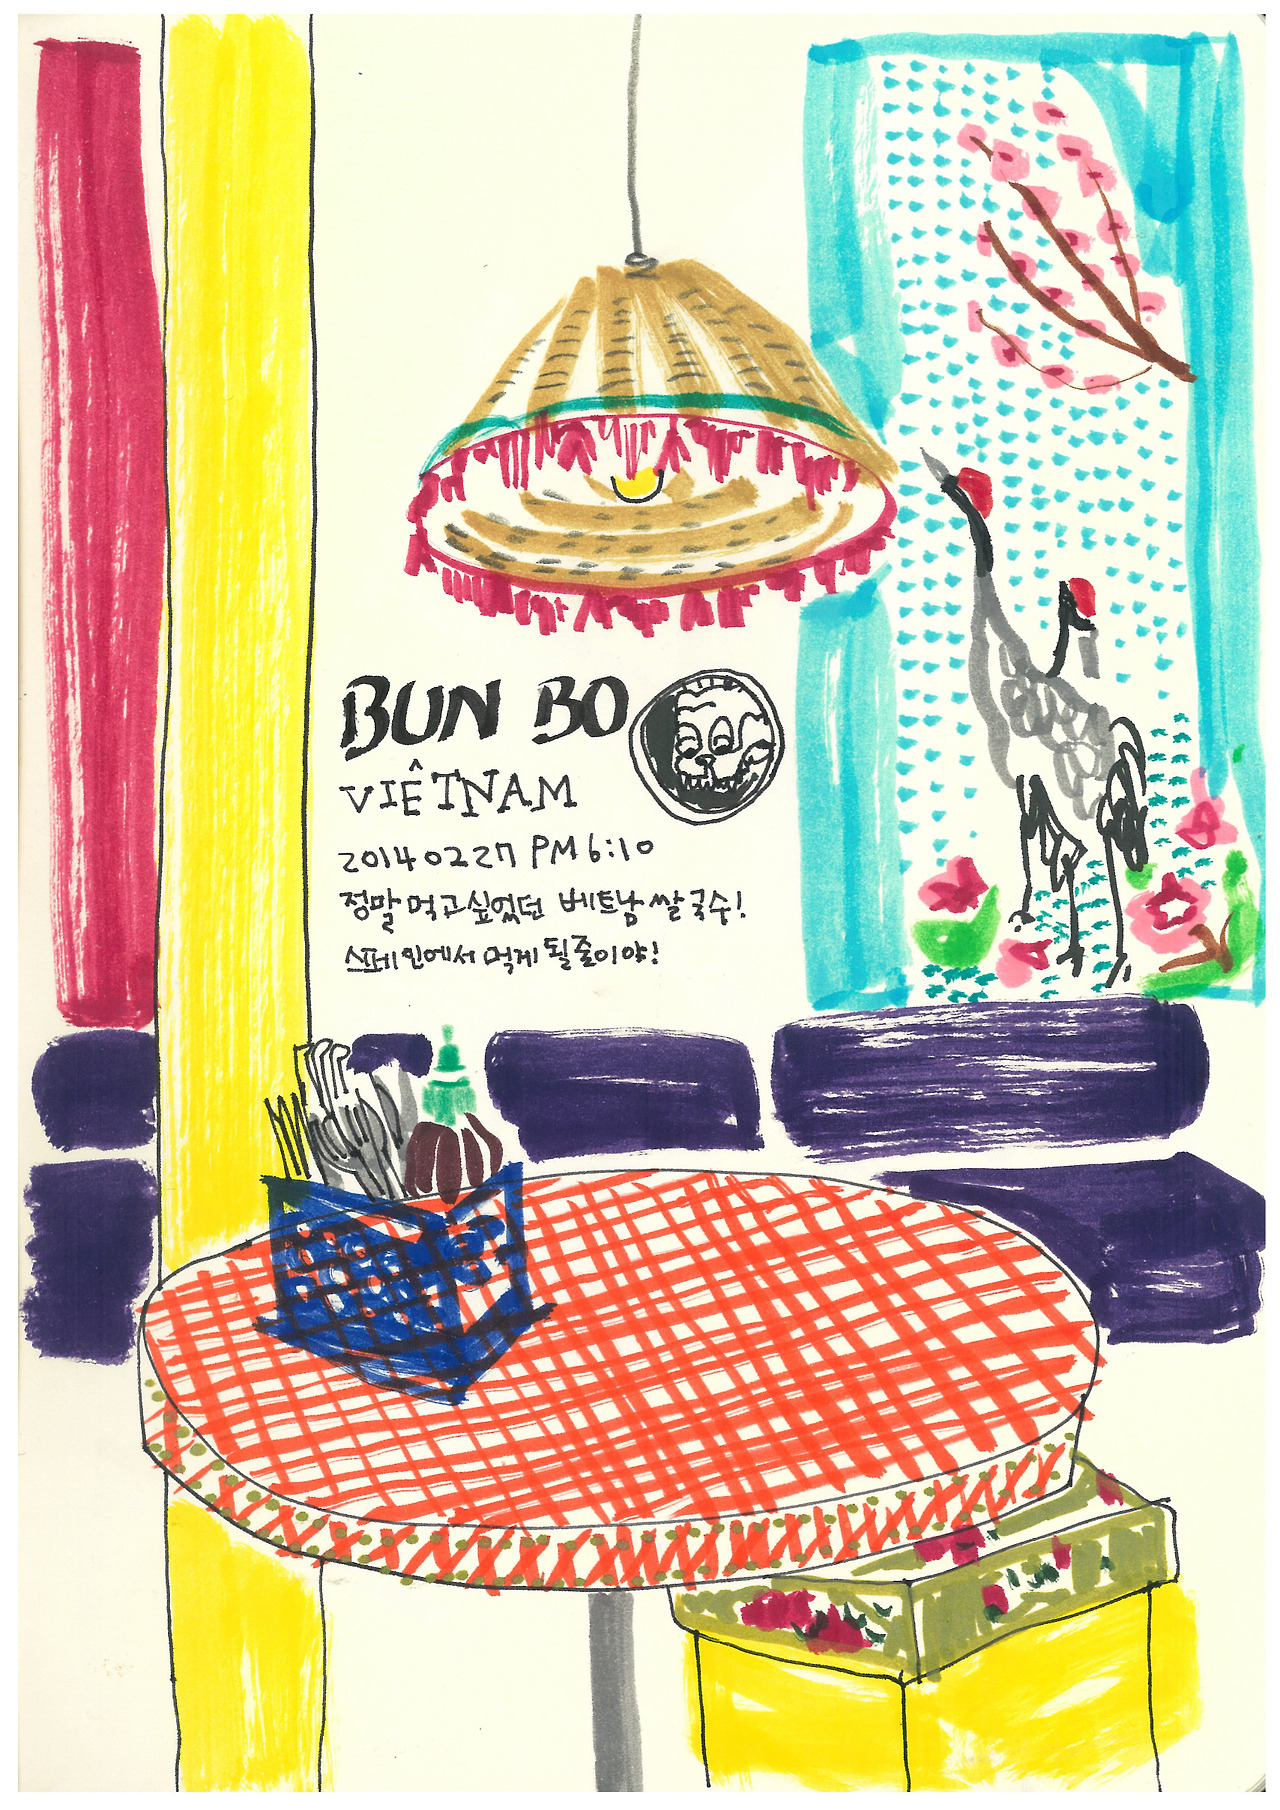 BUN BO
VIÊTNAM
20140227 PM 6:10
정말 먹고싶었던 베트남 쌀국수!
스페인에서 먹게 될줄이야!